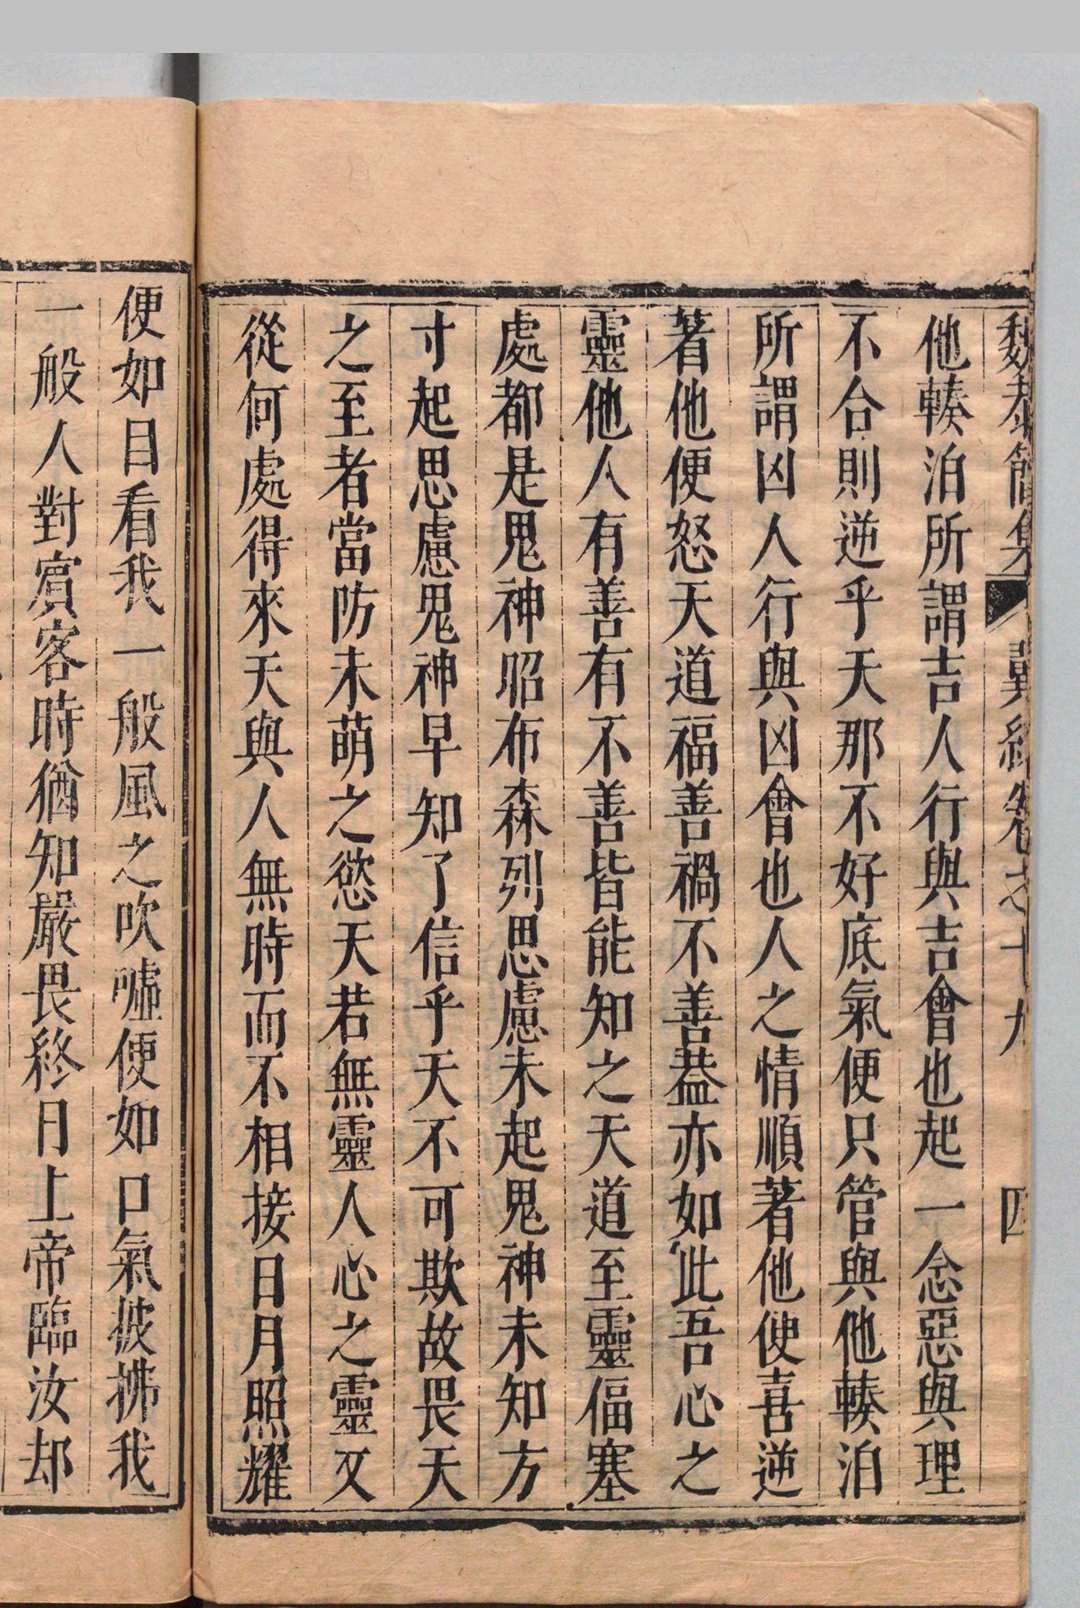 魏恭簡集 冀經卷之十九 四
他輳泊所謂吉人行與吉會也起一念惡與理
不合則逆乎天那不好底氣便只管與他輳泊
所謂凶人行與凶會也人之情順著他便喜逆
著他便怒天道福善禍不善葢亦如此吾心之
靈他人有善有不善皆能知之天道至靈偪塞
處都是鬼神昭布森列思慮未起鬼神未知方
寸起思慮鬼神早知了信乎天不可欺故畏天
之至者當防未萌之慾天若無靈人心之靈又
從何處得來天與人無時而不相接日月照耀
便如目看我一般風之吹噓便如口氣披拂我
一般人對賓客時猶知嚴畏終日上帝臨汝却